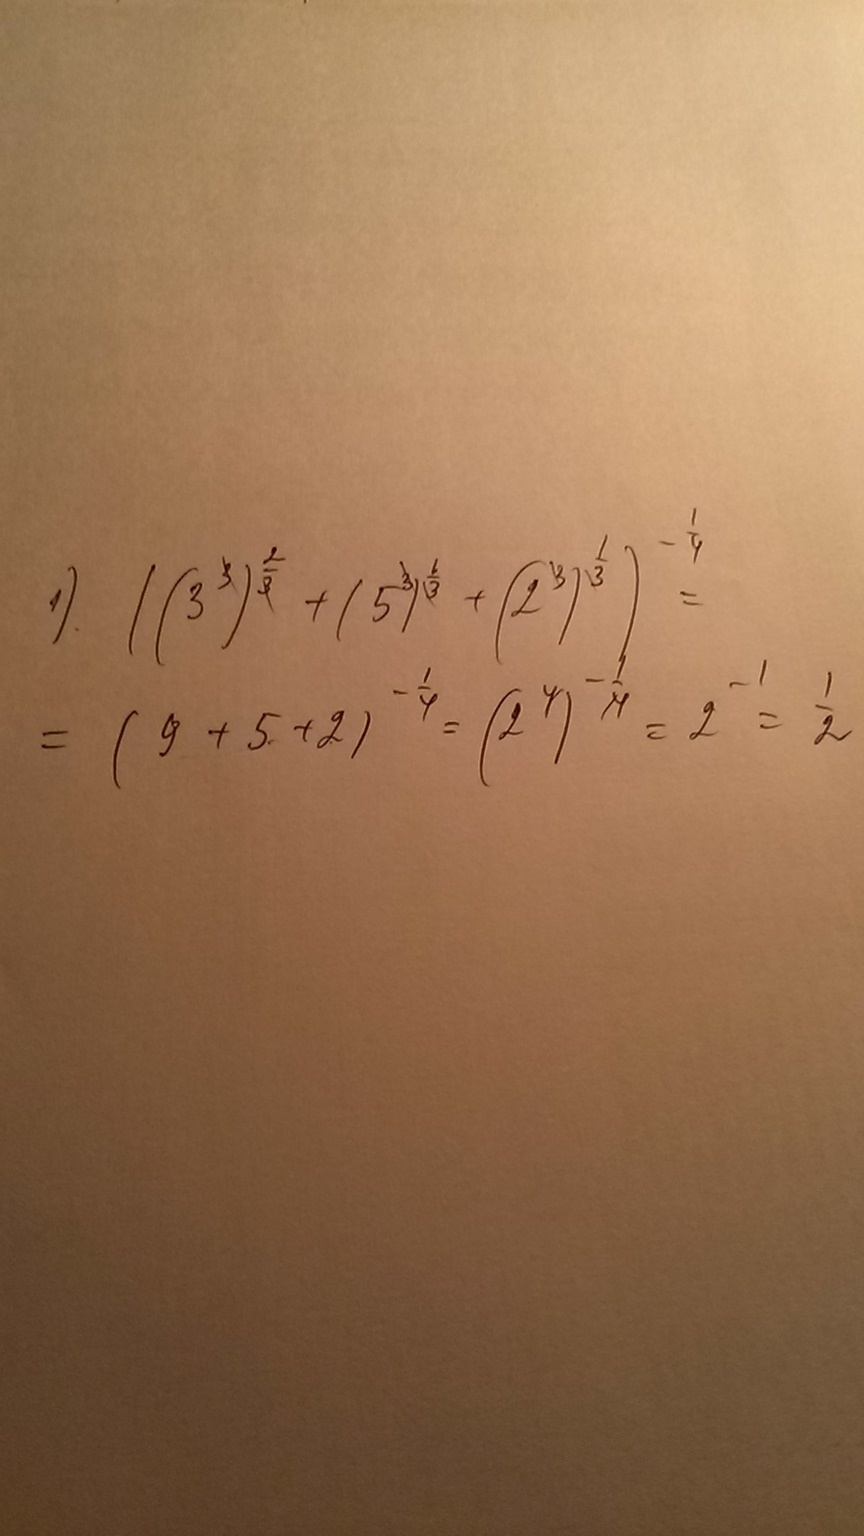 1). ((3³)^(2/3) + (5³)^(1/3) + (2³)^(1/3))^(-1/4) =
= (9 + 5 + 2)^(-1/4) = (2⁴)^(-1/4) = 2^(-1) = 1/2